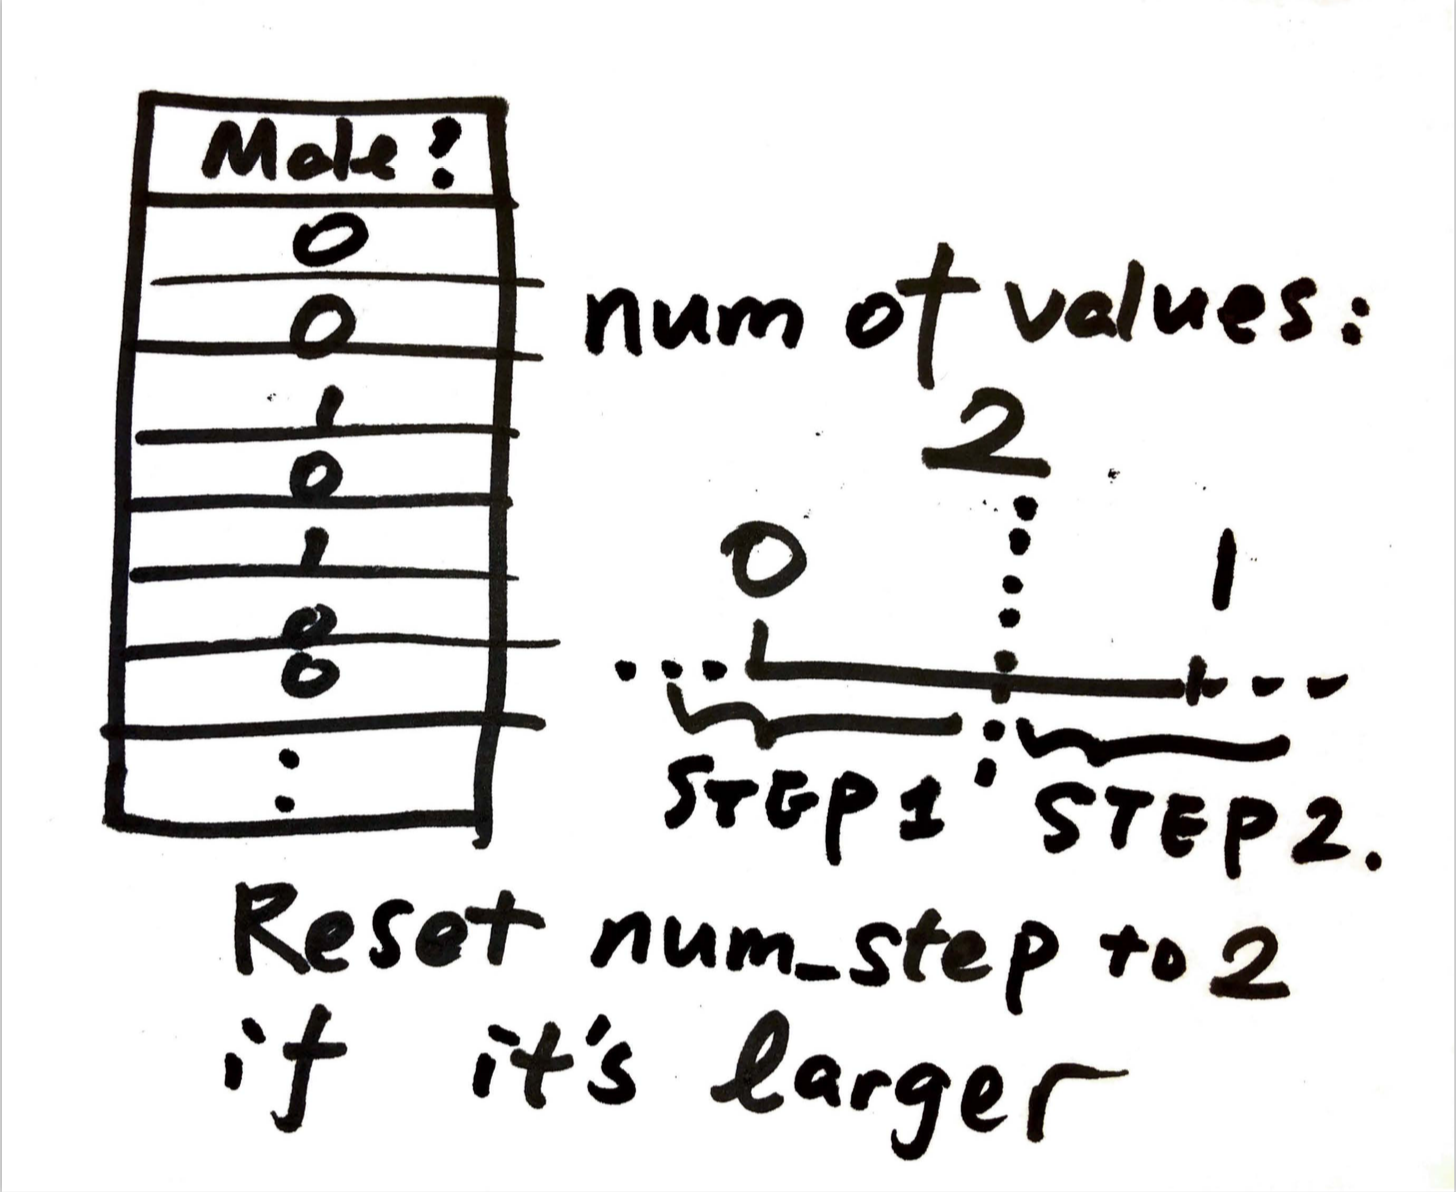 Male?
0
0
1
0
1
0
0
num of values:
2
0 1
STEP1 STEP2.
Reset num_step to 2
if it's larger